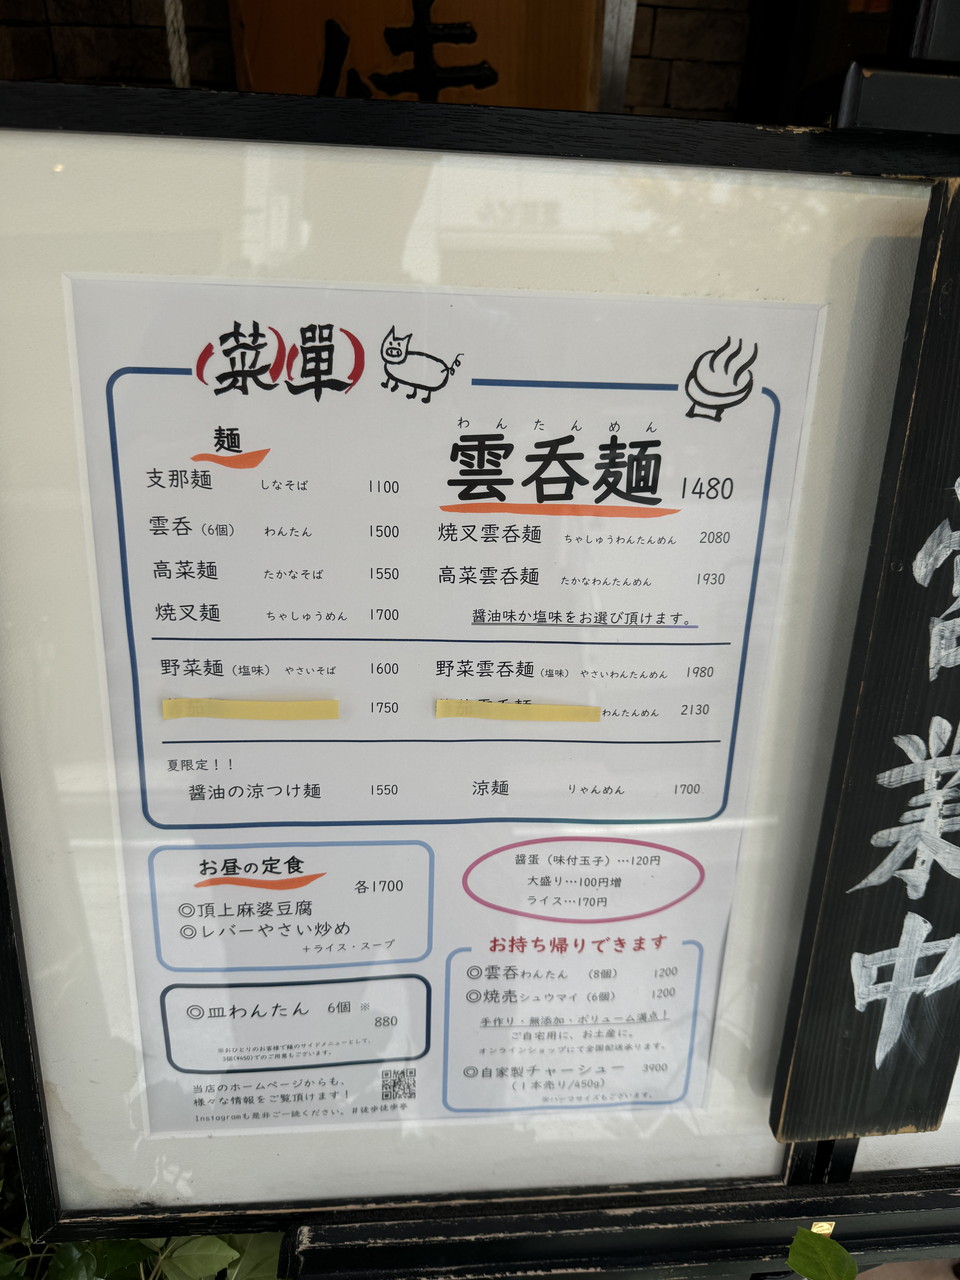 菜單
麺
支那麺 しなそば 1100
雲呑（6個） わんたん 1500
高菜麺 たかなそば 1550
焼叉麺 ちゃしゅうめん 1700
わんたんめん
雲呑麺 1480
焼叉雲呑麺 ちゃしゅうわんたんめん 2080
高菜雲呑麺 たかなわんたんめん 1930
醤油味か塩味をお選び頂けます。
野菜麺（塩味） やさいそば 1600
野菜雲呑麺（塩味） やさいわんたんめん 1980
1750
わんたんめん 2130
夏限定！！
醤油の涼つけ麺 1550
涼麺 りゃんめん 1700
お昼の定食
各1700
◎頂上麻婆豆腐
◎レバーやさい炒め
＋ライス・スープ
醤蛋（味付玉子）…120円
大盛り…100円増
ライス…170円
◎皿わんたん 6個 ※
880
※おひとりのお客様で麺のサイドメニューとして、
3個(¥450)でのご用意もございます。
お持ち帰りできます
◎雲呑わんたん （8個） 1200
◎焼売シュウマイ（6個） 1200
手作り・無添加・ボリューム満点！
ご自宅用に、お土産に。
オンラインショップにて全国配送承ります。
◎自家製チャーシュー 3900
（1本売り/450g）
※ハーフサイズもございます。
当店のホームページからも、
様々な情報をご覧頂けます！
Instagramも是非ご一読ください。#徒歩徒歩亭
営業中